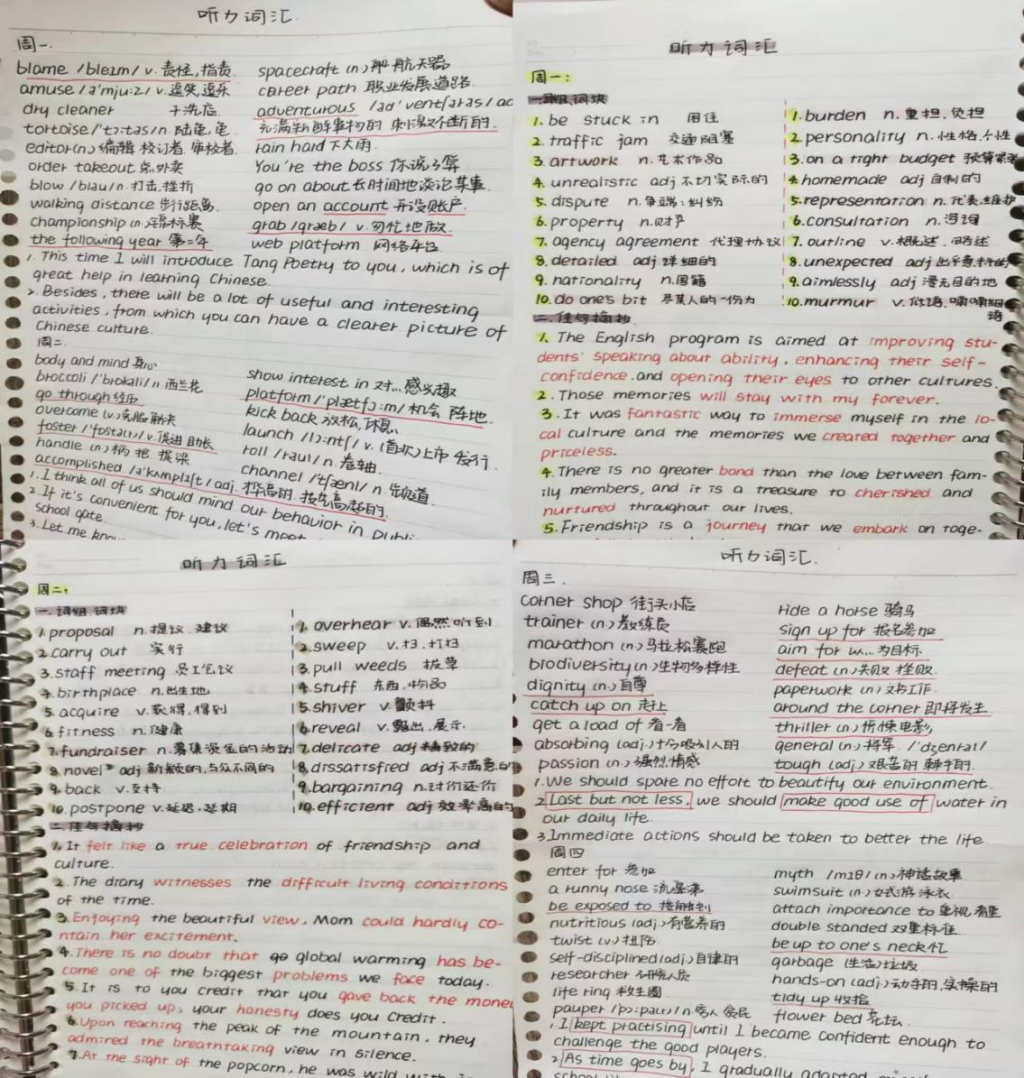 听力词汇
周一.
blame /bleɪm/ v. 责怪,指责
amuse /ə'mju:z/ v. 逗笑,逗乐
dry cleaner 干洗店
tortoise /'tɔ:təs/n 陆龟,龟
editor(n.)编辑 校订者.审校者
order takeout 点外卖
blow /bləu/n. 打击,挫折
walking distance 步行距离
championship (n.)锦标赛
the following year 第二年
spacecraft (n.) 航天器
career path 职业发展道路
adventurous /əd'ventʃərəs/ad
充满新鲜事物的 刺激不断的.
rain hard 下大雨.
You're the boss 你说了算
go on about 长时间地谈论某事
open an account 开设账户
grab /græb/ v. 匆忙地做
web platform 网络平台
1. This time I will introduce Tang Poetry to you, which is of
great help in learning Chinese.
2. Besides, there will be a lot of useful and interesting
activities, from which you can have a clearer picture of
Chinese culture.
周二.
body and mind 身心
broccoli /'brɒkəli/n 西兰花
go through 经历
overcome (v.)克服,解决
foster /'fɒstə(r)/ v. 促进 助长
handle (n.) 柄 把 提梁
accomplished /ə'kʌmplɪʃt/adj.
show interest in 对...感兴趣
platform /'plætfɔ:m/ 机会 阵地.
kick back 放松,休息.
launch /lɔ:ntʃ/ v. (首次)上市 发行.
roll /rəul/ n. 卷轴.
channel /tʃænl/ n. 频道
1. I think all of us should mind our behavior in public
2. If it's convenient for you, let's meet
school gate.
3. Let me know
听力词汇
周一:
一.词组,词块
1. be stuck in 困住
2. traffic jam 交通阻塞
3. artwork n.艺术作品
4. unrealistic adj 不切实际的
5. dispute n.争端;纠纷
6. property n.财产
7. agency agreement 代理协议
8. detailed adj 详细的
9. nationality n.国籍
10. do one's bit 尽某人的一份力
1. burden n.重担.负担
2. personality n.性格.个性
3. on a tight budget 预算紧
4. homemade adj 自制的
5. representation n.代表.维护
6. consultation n.咨询
7. outline v.概述.略述
8. unexpected adj 出乎意料的
9. aimlessly adj 漫无目的地
10. murmur v.低语.喃喃细
语
二.佳句摘抄
1. The English program is aimed at improving stu-
dents' speaking about ability, enhancing their self-
confidence.and opening their eyes to other cultures.
2. Those memories will stay with my forever.
3. It was fantastic way to immerse myself in the lo-
cal culture and the memories we created together and
priceless.
4. There is no greater bond than the love between fam-
ily members, and it is a treasure to cherished and
nurtured throughout our lives.
5. Friendship is a journey that we embark on toge-
听力词汇
周二:
一.词组 词块
1. proposal n.提议.建议
2. carry out 实行
3. staff meeting 员工会议
4. birthplace n.出生地
5. acquire v.获得.得到
6. fitness n.健康
7. fundraiser n.募集资金的活动
8. novel adj 新颖的,与众不同的
9. back v.支持
10. postpone v.延迟.延期
1. overhear v.偶然听到
2. sweep v.扫.打扫
3. pull weeds 拔草
4. stuff 东西.物品
5. shiver v.颤抖
6. reveal v.露出.展示.
7. delicate adj 精致的
8. dissatisfied adj 不满意的
9. bargaining n.讨价还价
10. efficient adj 效率高的
二.佳句摘抄
1. It felt like a true celebration of friendship and
culture.
2. The diary witnesses the difficult living conditions
of the time.
3. Enjoying the beautiful view, Mom could hardly co-
ntain her excitement.
4. There is no doubt that global warming has be-
come one of the biggest problems we face today.
5. It is to you credit that you gave back the money
you picked up, your honesty does you credit.
6. Upon reaching the peak of the mountain, they
admired the breathtaking view in silence.
7. At the sight of the popcorn, he was wild with
听力词汇.
周三.
corner shop 街头小店
trainer (n.)教练员
marathon (n.)马拉松赛跑
biodiversity(n.)生物多样性
dignity (n.)自尊
catch up on 赶上
get a load of 看一看
absorbing (adj.)十分吸引人的
passion (n.)强烈情感
ride a horse 骑马
sign up for 报名参加
aim for 以...为目标.
defeat (n.)失败 挫败.
paperwork (n.)文书工作.
around the corner 即将发生.
thriller (n.)惊悚电影,
general (n.)将军 /'dʒenrəl/
tough (adj.)艰苦的 棘手的.
1. We should spare no effort to beautify our environment.
2. Last but not less, we should make good use of water in
our daily life.
3. Immediate actions should be taken to better the life
周四
enter for 参加
a runny nose 流鼻涕
be exposed to 接触到
nutritious (adj.)有营养的
twist (v.)扭伤
self-disciplined(adj.)自律的
researcher 研究人员
life ring 救生圈
pauper /pɔ:pə(r)/n 穷人 贫民
myth /mɪθ/ (n.)神话故事
swimsuit (n.)女式游泳衣
attach importance to 重视,着重
double standed 双重标准
be up to one's neck 忙
garbage (生活)垃圾
hands-on (adj.)动手的,实操的
tidy up 收拾
flower bed 花坛.
1. I kept practising until I became confident enough to
challenge the good players.
2. As time goes by, I gradually adapted